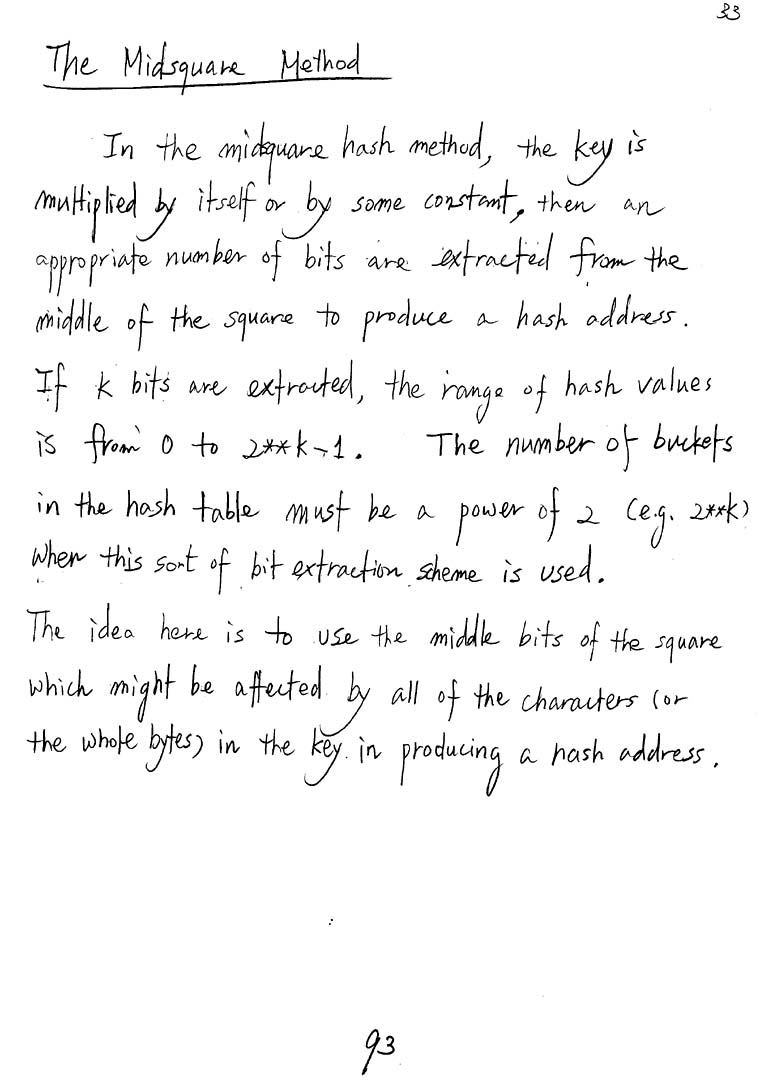 33
The Midsquare Method
In the midsquare hash method, the key is
multiplied by itself or by some constant, then an
appropriate number of bits are extracted from the
middle of the square to produce a hash address.
If k bits are extracted, the range of hash values
is from 0 to 2**k-1. The number of buckets
in the hash table must be a power of 2 (e.g. 2**k)
when this sort of bit extraction scheme is used.
The idea here is to use the middle bits of the square
which might be affected by all of the characters (or
the whole bytes) in the key in producing a hash address.
93